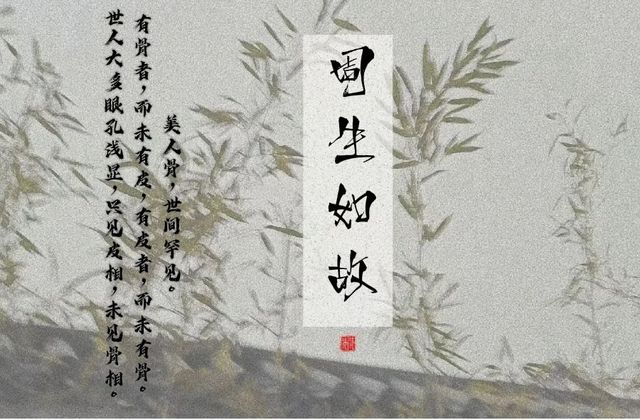 周生如故
美人骨，世间罕见。
有骨者，而未有皮，有皮者，而未有骨。
世人大多眼孔浅显，只见皮相，未见骨相。